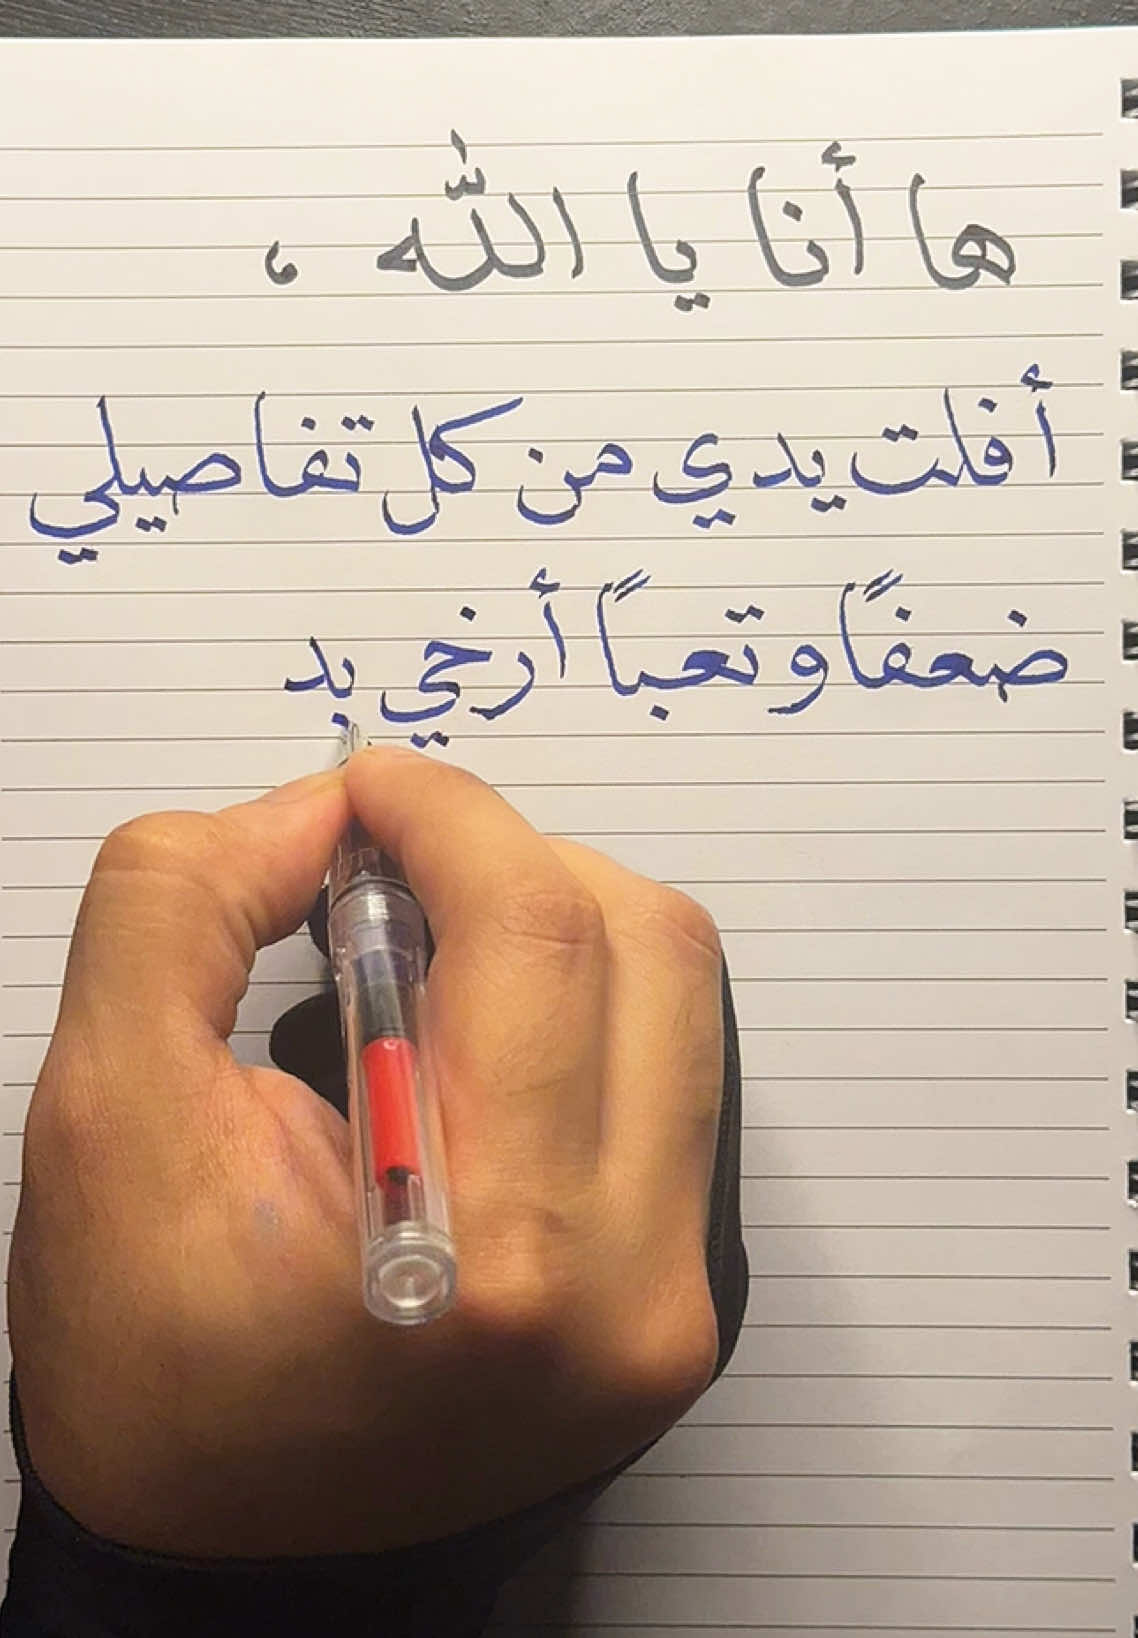 ها أنا يا الله ،
أفلت يدي من كل تفاصيلي
ضعفًا وتعباً أرخي بد